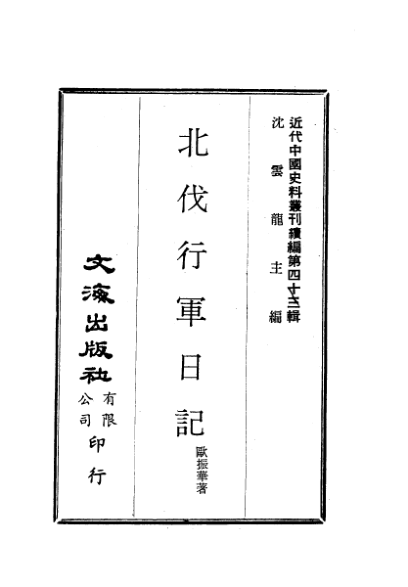 近代中國史料叢刊續編第四十三輯
沈雲龍主編
北伐行軍日記
歐振華著
文海出版社
有限
公司
印行